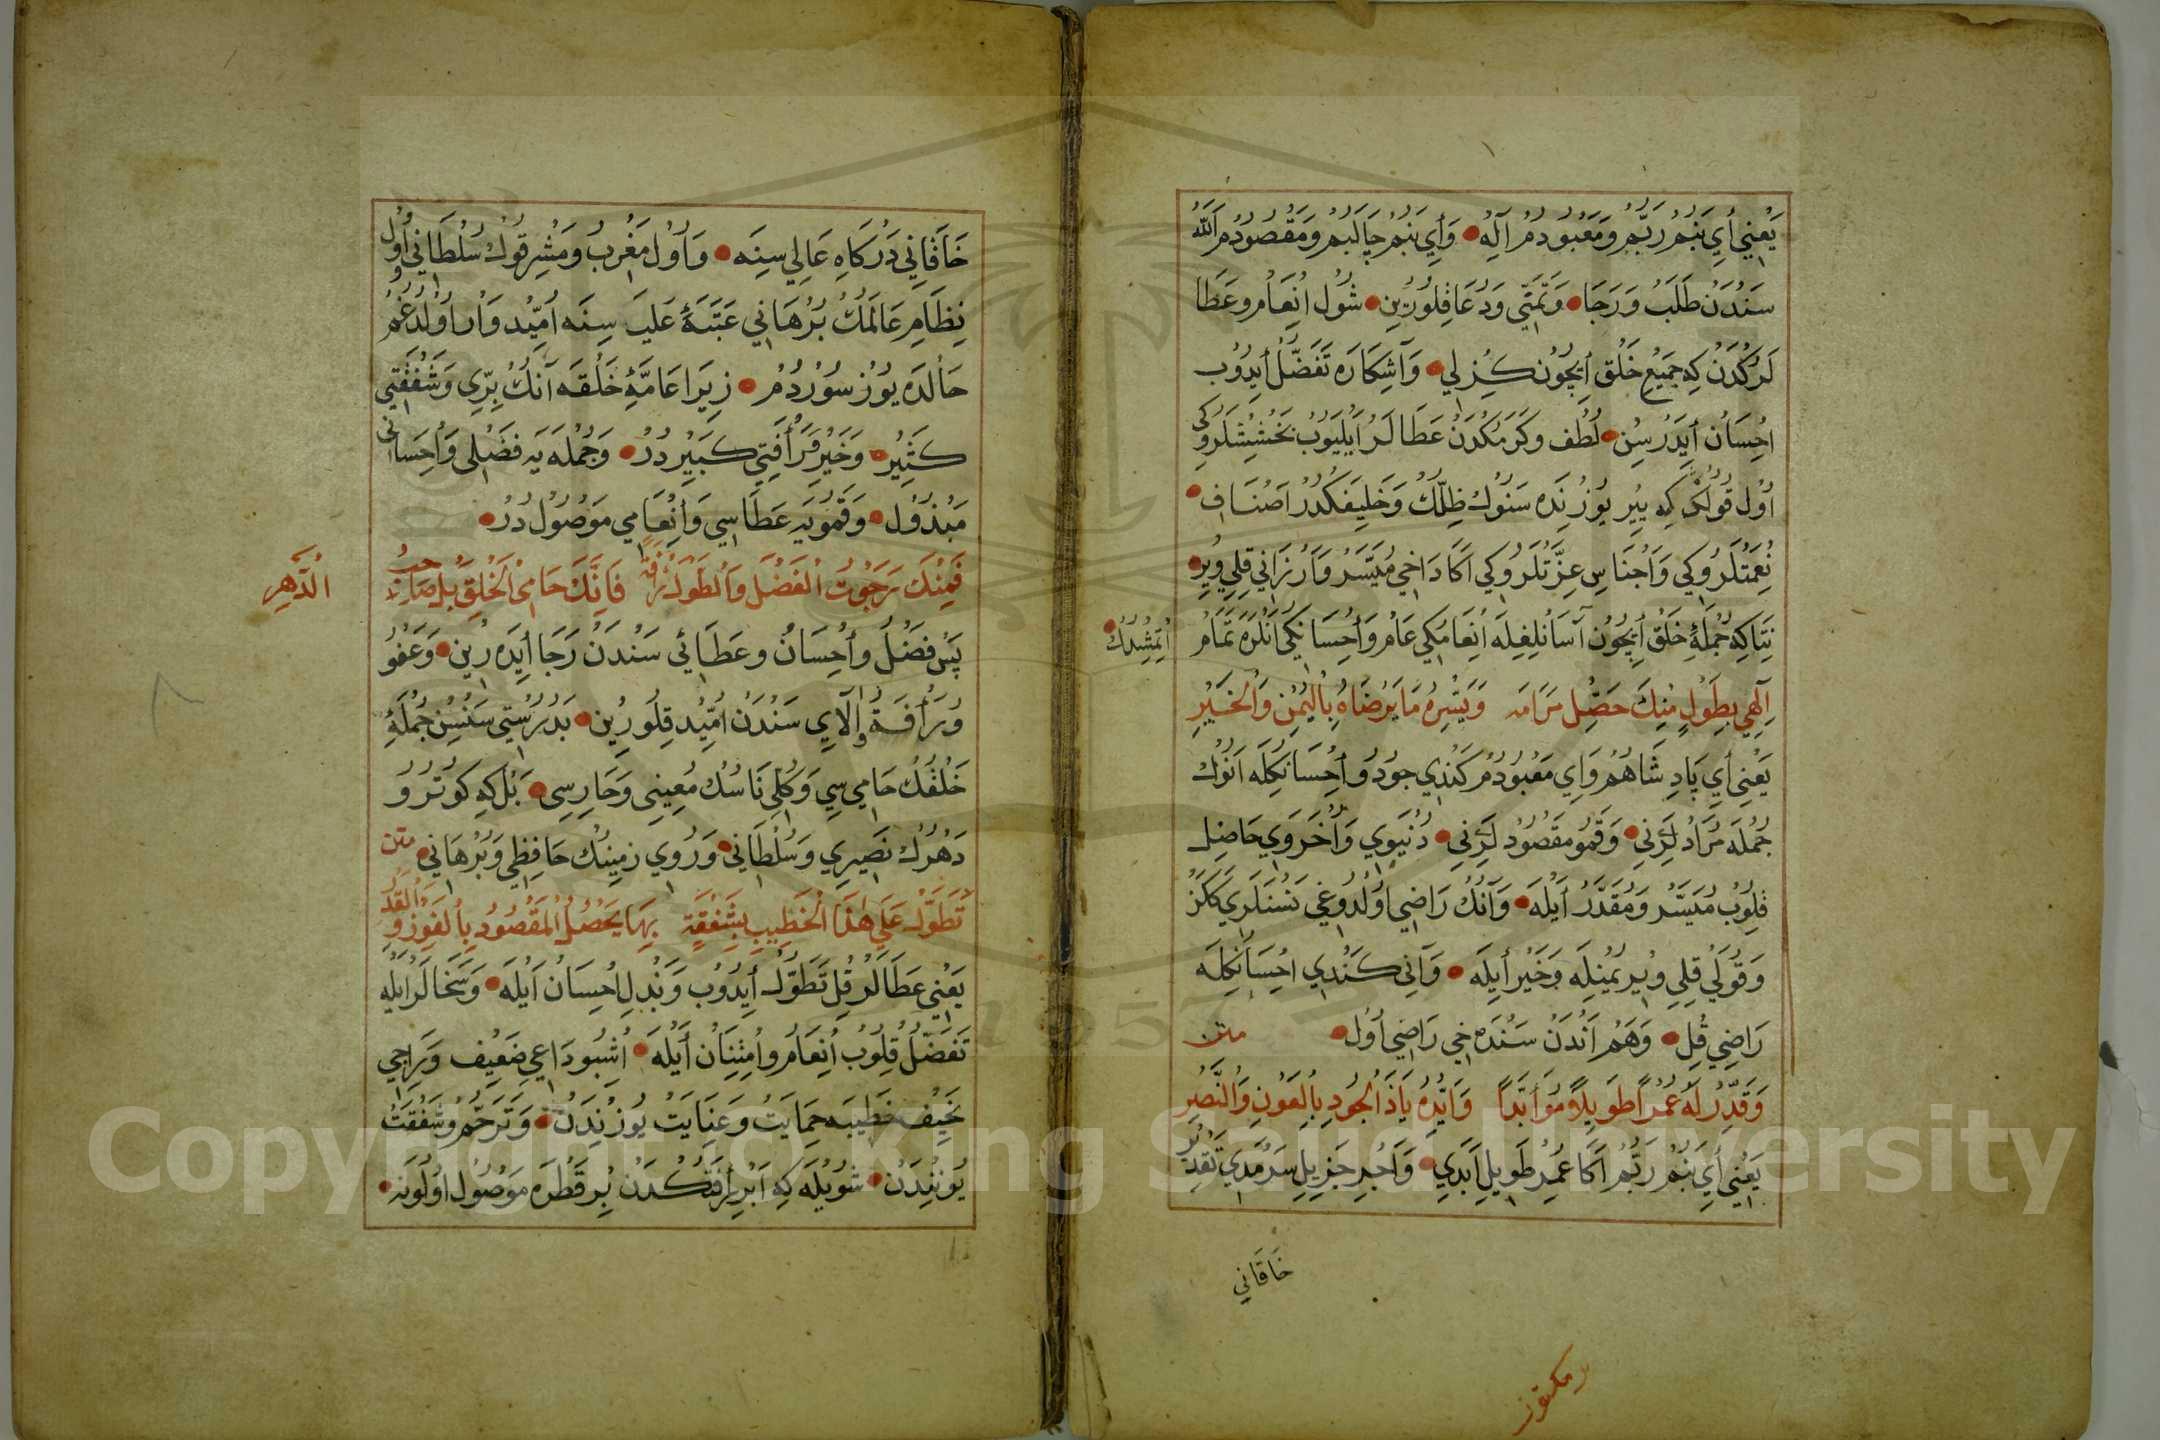 يَعْنِي أَيْ بَنُمْ رَبُّمْ وَمَعْبُودُمْ آلٰه وَأَيْ بَنُمْ جَالَبُمْ وَمَقْصُودُمْ اَللّٰه
سَنْدَنْ طَلَبُ وَرَجَا وَتَمَنِّي وَدُعَا قِلُورِينْ شُولْ اِنْعَامْ وعَطَا
لَرُكْدَنْ كِه جَمِيعِ خَلْقْ اِيچُونْ كِزْلِي وَآشِكَارَه تَفَضُّلْ اَيدُوبْ
اِحْسَانْ اَيدَرْسِنْ لُطْف وكَرَمُكْدَنْ عَطَالَرْ اَيْلَيُوبْ بَخْشِشْلَرْوِكِي
اُولْ قُولُكْ كِه يِيرْ يُوزُنْدَه سَنُوكْ ظِلُّكْ وَخَلِيفَكْدُرْ اَصْنَافِ
نِعْمَتْلَرُوكِي وَاَجْنَاسِ عِزَّتْلَرُوكِي اَكَا دَاخِي مُيَسَّرْ وَاَرْزَانِي قِلِي وِيرْ
نِتَاكِه جُمْلَۀِ خَلْقْ اِيچُونْ آسَانْلِغِلَه اِنْعَامُكِي عَامْ وَاِحْسَانِكِي اَنْلَرَه تَمَامْ
اِتْمِشْدُكْ
اِلٰهِي بِطَوْلٍ مِنْكَ حَصِّلْ مَرَامَه وَيَسِّرْهُ مَا يَرْضَاهُ بِالْيُمْنِ وَالْخَيْرِ
يَعْنِي أَيْ پَادِشَاهُمْ وَاَيْ مَعْبُودُمْ كَنْدِي جُودْ وَاِحْسَانِكِلَه اَنُوكْ
جُمْلَه مُرَادْلَرِنِي وَقَمُو مَقْصُودْلَرِنِي دُنْيَوِي وَاُخْرَوِي حَاصِلْ
قِلُوبْ مُيَسَّرْ وَمُقَدَّرْ اَيْلَه وَآنُكْ رَاضِي اُولْدُوغِي نَسْنَلَرِي كَرَكْ
وَقُولَيْ قِلِي وِيرْ يُمْنِلَه وَخَيْرْ اَيلَه وَآنِي كَنْدِي اِحْسَانِكِلَه
رَاضِي قِلْ وَهَمْ اَنْدَنْ سَنْدَه خِي رَاضِي اُولْ متن
وَقَدِّرْ لَهُ عُمْرًا طَوِيلًا مُؤَبَّدًا وَاَيِّدْهُ يَا ذَا الْجُودِ بِالْعَوْنِ وَالنَّصْرِ
يَعْنِي أَيْ بَنُمْ رَبُّمْ اَكَا عُمْرِ طَوِيلِ اَبَدِي وَاَجْرِ جَزِيلِ سَرْمَدِي تَقْدِيرْ
خَاقَانِي
خَاقَانِي دَرْكَاهِ عَالِي سِنَه وَاُولْ مَغْرِبُ وَمَشْرِقُوكْ سُلْطَانِي اُولْ
نِظَامِ عَالَمُكْ بُرْهَانِي عَتَبَۀِ عَلِيَّه سِنَه اُمِّيدْ وَارْ اُولْدُغُمْ
حَالْدَه يُوزْ سُورْدُمْ زِيرَا عَامَّۀِ خَلْقَه آنُكْ بِرِّي وَشَفْقَتِي
كَثِيرْ وَخَيْرْ وَرَأْفَتِي كَبِيرْدُرْ وَجُمْلَه يَه فَضْلِي وَاِحْسَانِي
مَبْذُولْ وَقَمُويَه عَطَاسِي وَاِنْعَامِي مَوْصُولْدُرْ
فَمِنْكَ رَجَوْتُ الْفَضْلَ وَالطَّوْلَ رَأْفَة فَاِنَّكَ حَامِي الْخَلْقِ بَلْ صَاحِبُ
الدَّهْرِ
پَسْ فَضْلُ وَاِحْسَانْ وعَطَائِي سَنْدَنْ رَجَا اَيدَه رِينْ وَعَفْوُ
وُرَأْفَةُ وَاِلْآيِي سَنْدَنْ اُمِّيدْ قِلُورِينْ بَدُرُسْتِي سَنْسِنْ جُمْلَۀِ
خَلْقُكْ حَامِي سِي وَكُلِّي نَاسُكْ مُعِينِي وَحَارِسِي بَلْ كِه كَوْتُرُو
دَهْرُكْ نَصِيرِي وَسُلْطَانِي وَرُويِ زَمِينِكْ حَافِظِي وَبُرْهَانِي متن
تَطَوَّلْ عَلَى هٰذَا الْخَطِيبِ بِشَفْقَةٍ بِهَا يَحْصُلُ الْمَقْصُودُ بِالْفَوْزِ وَالْقَدْرِ
يَعْنِي عَطَالَرْ قِلْ تَطَوُّلْ اَيدُوبْ وَبَذْلِ اِحْسَانْ اَيْلَه وَسَخَالَرْ اَيْلَه
تَفَضُّلْ قِلُوبْ اِنْعَامْ وَاِمْتِنَانْ اَيْلَه اُشْبُو دَاعِي ضَعِيف وَرَاجِي
نَحِيف خَطِيبَه حِمَايَتْ وَعِنَايَتْ يُوزُنْدَنْ وَتَرَحُّمْ وَشَفْقَتْ
يُوزُنْدَنْ شُويْلَه كِه اَبْرِ رَأْفَتُكْدَنْ بِرْ قَطْرَه مَوْصُولْ اُولُونَه